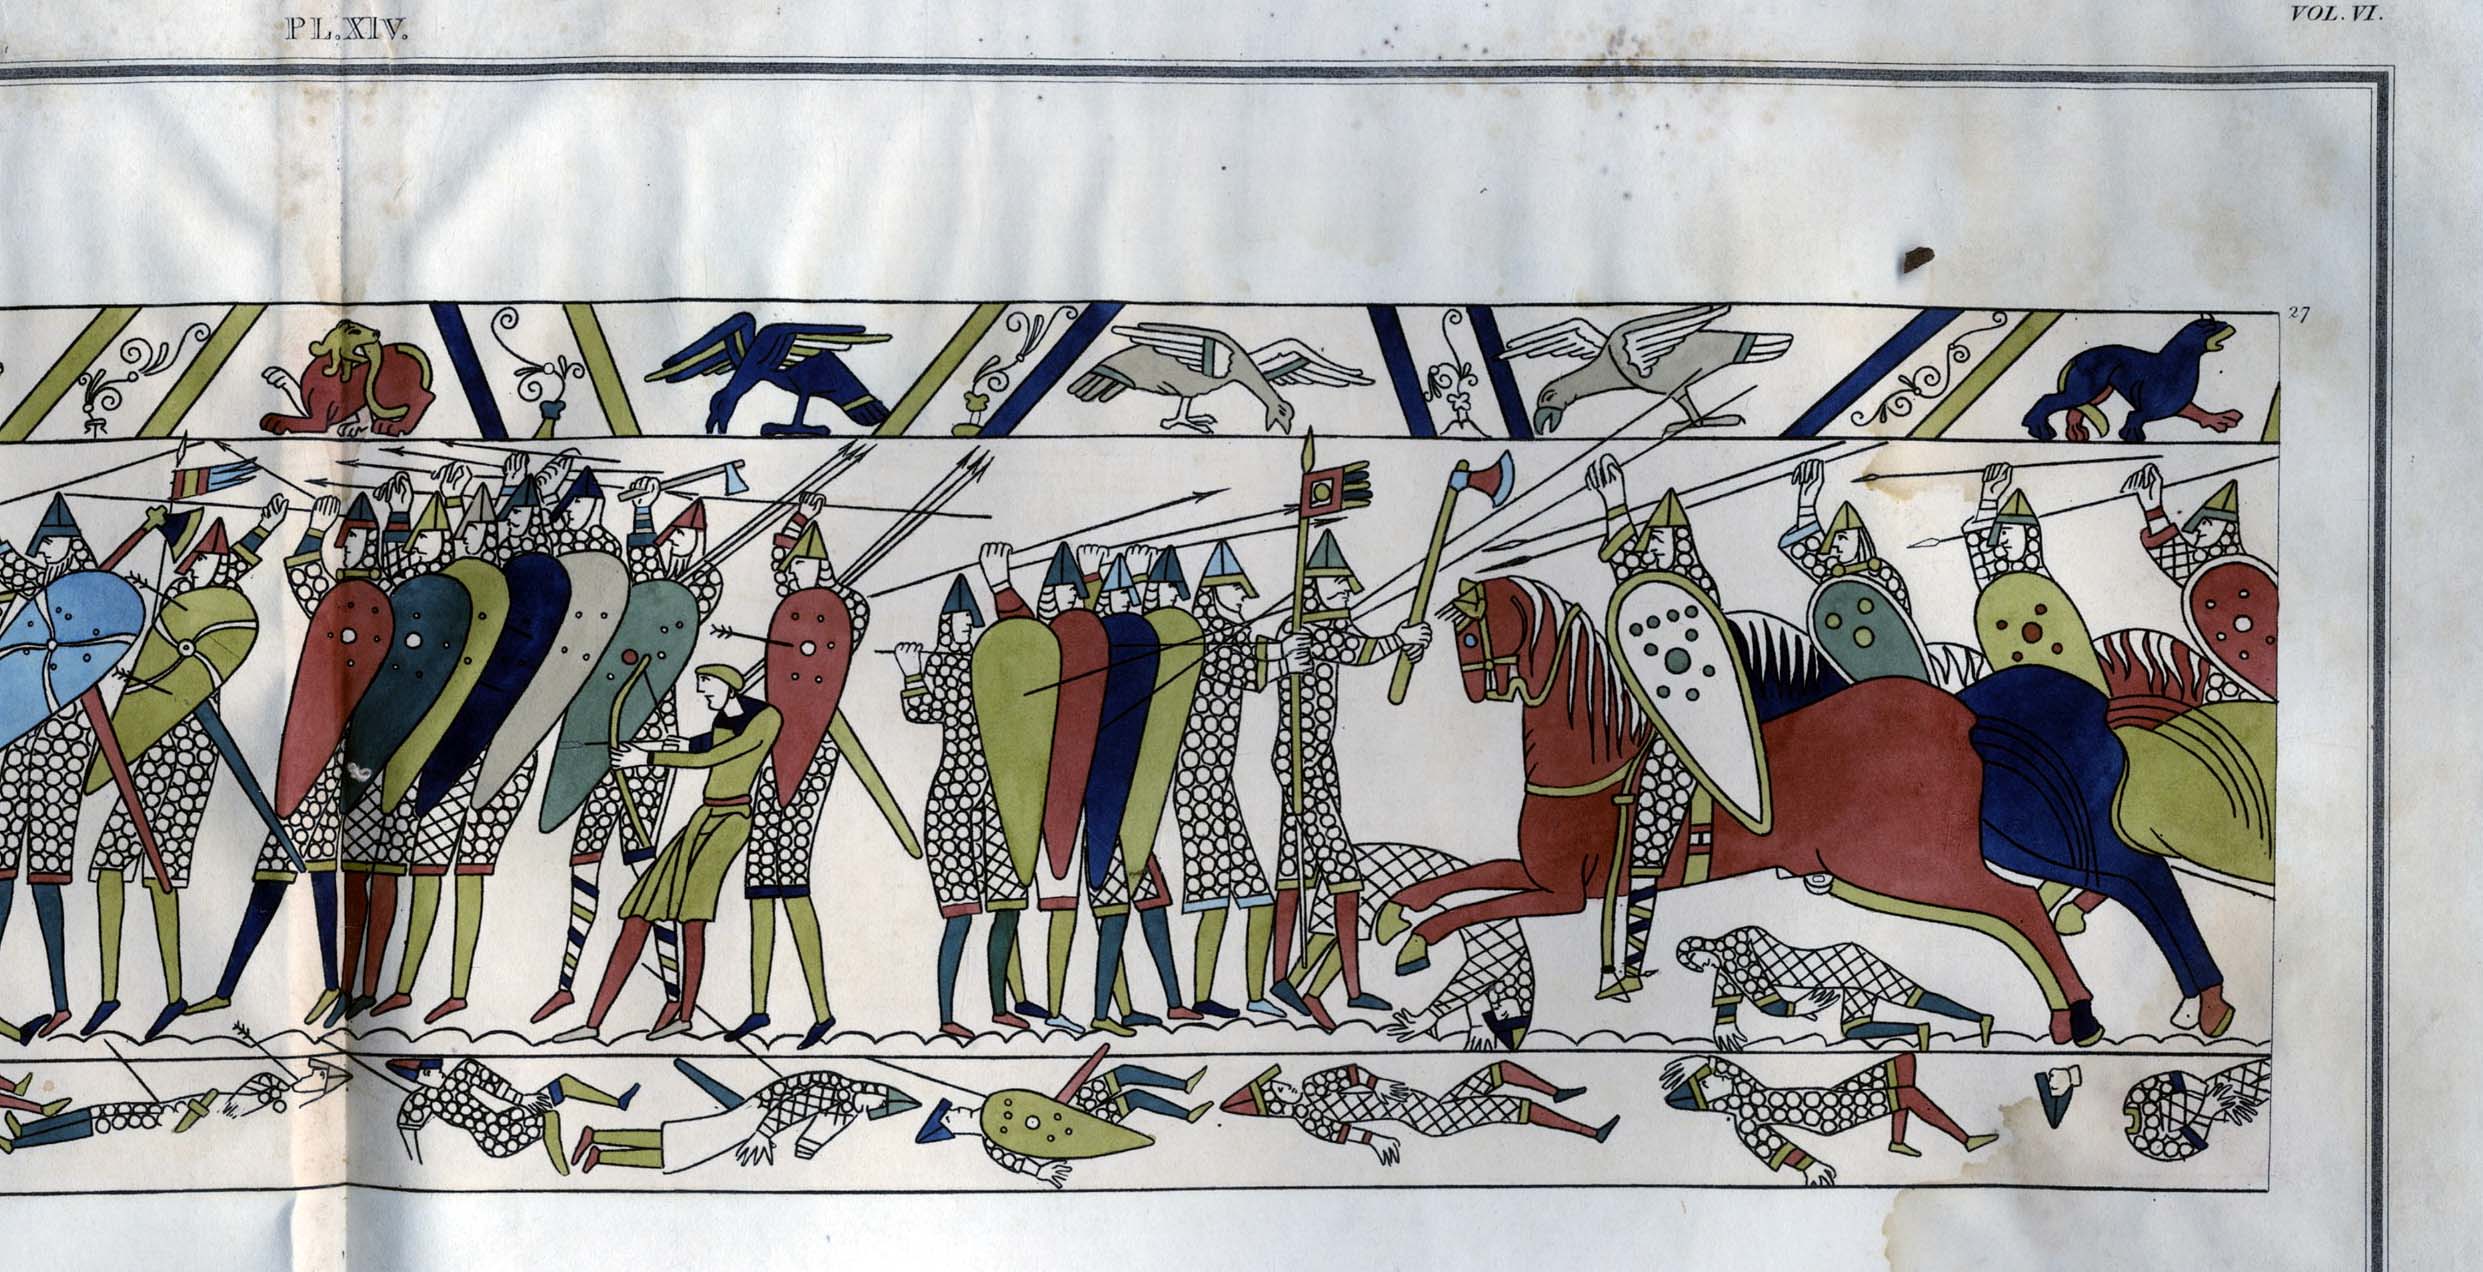 PL.XIV.
VOL.VI.
27